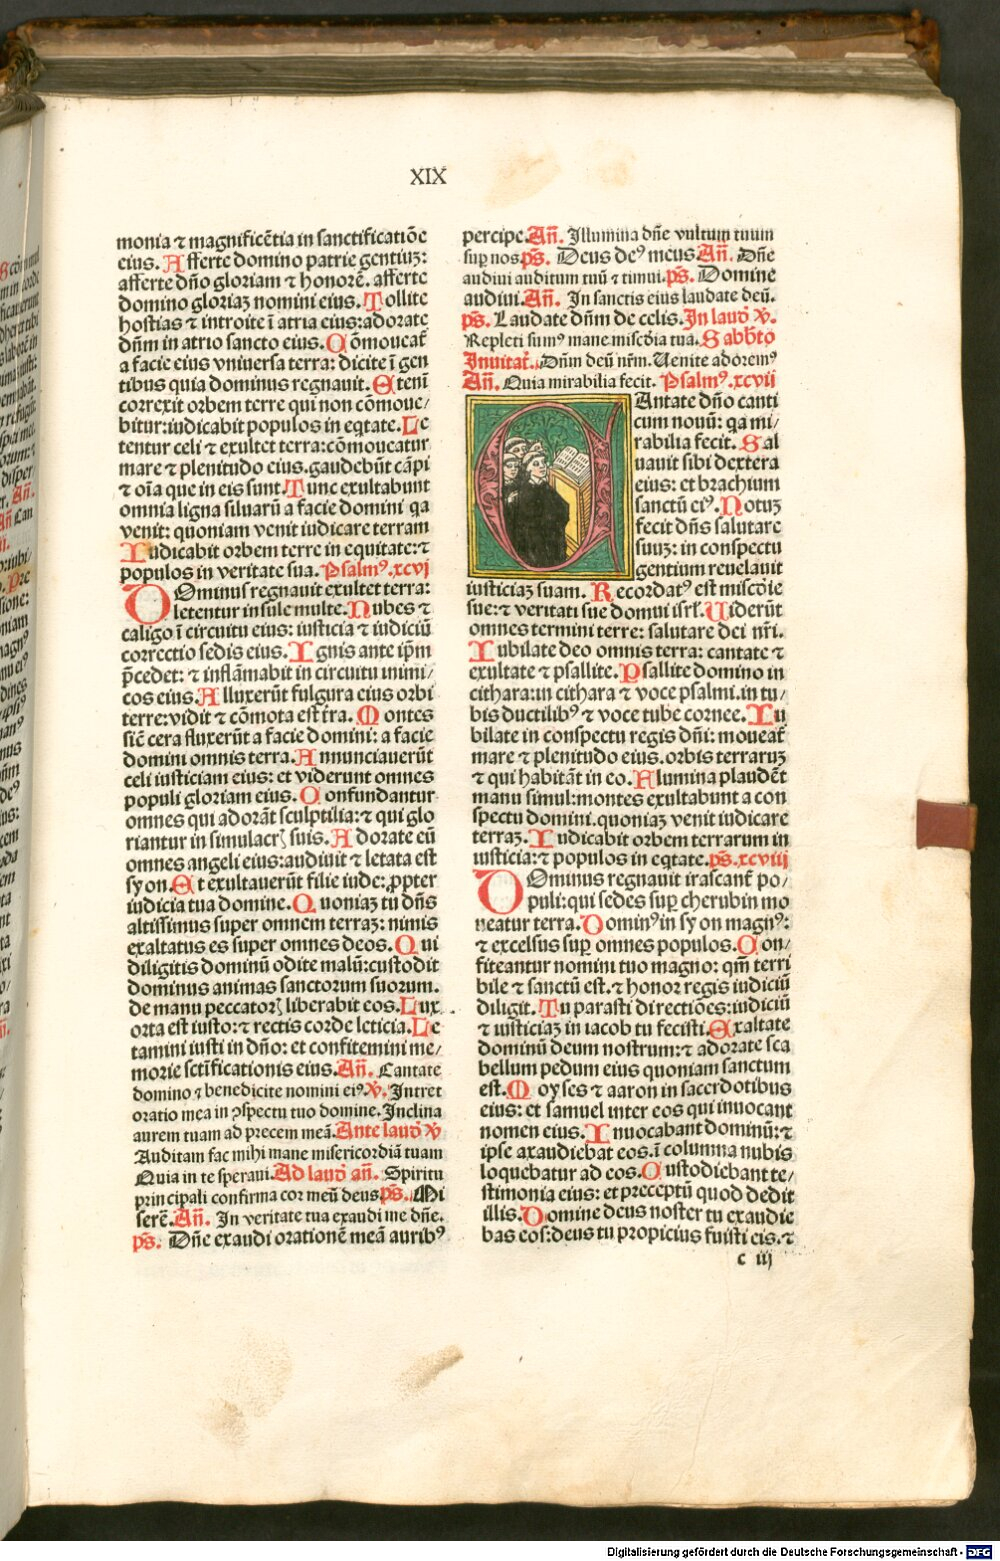 XIX
monia ⁊ magnificẽtia in sanctificatiõe
eius. Afferte domino patrie gentiuʒ:
afferte dño gloriam ⁊ honorẽ. afferte
domino gloriaʒ nomini eius. Tollite
hostias ⁊ introite ĩ atria eius: adorate
dñm in atrio sancto eius. Cõmoueat̃
a facie eius vniuersa terra: dicite ĩ gen
tibus quia dominus regnauit. Etenĩ
correxit orbem terre qui non cõmoue/
bitur: iudicabit populos in eq̃tate. Le
tentur celi ⁊ exultet terra: cõmoueatur
mare ⁊ plenitudo eius. gaudebũt cãpi
⁊ oĩa que in eis sunt. Tunc exultabunt
omnia ligna siluarũ a facie domini qa
venit: quoniam venit iudicare terram
Iudicabit orbem terre in equitate: ⁊
populos in veritate sua. Psalmꝰ .xcvj
Dominus regnauit exultet terra:
letentur insule multe. Nubes ⁊
caligo ĩ circuitu eius: iusticia ⁊ iudiciũ
correctio sedis eius. Ignis ante ip̃m
p̃cedet: ⁊ inflãmabit in circuitu inimi/
cos eius. Alluxerũt fulgura eius orbi
terre: vidit ⁊ cõmota est t̃ra. Montes
sic̃ cera fluxerũt a facie domini: a facie
domini omnis terra. Annunciauerũt
celi iusticiam eius: et viderunt omnes
populi gloriam eius. Confundantur
omnes qui adorãt sculptilia: ⁊ qui glo
riantur in simulacrꝝ suis. Adorate eũ
omnes angeli eius: audiuit ⁊ letata est
syon. Et exultauerũt filie iude: ꝓpter
iudicia tua domine. Quoniaʒ tu dñs
altissimus super omnem terraʒ: nimis
exaltatus es super omnes deos. Qui
diligitis dominũ odite malũ: custodit
dominus animas sanctorum suorum.
de manu peccatorꝝ liberabit eos. Lux
orta est iusto: ⁊ rectis corde leticia. Le
tamini iusti in dño: et confitemini me/
morie sctĩficationis eius. Añ. Cantate
domino ⁊ benedicite nomini eiꝰ. ꝟ. Intret
oratio mea in ꝯspectu tuo domine. Inclina
aurem tuam ad precem meã. Ante laud̃ ꝟ
Auditam fac mihi mane misericordiã tuam
Quia in te speraui. Ad laud̃ añ. Spiritu
principali confirma cor meũ deus. p̃s. Mi
serẽ. Añ. In veritate tua exaudi me dñe.
p̃s. Dñe exaudi orationẽ meã auribꝰ
percipe. Añ. Illumina dñe vultum tuum
suꝑ nos. p̃s. Deus deꝰ meus. Añ. Dñe
audiui auditum tuũ ⁊ timui. p̃s. Domine
audiui. Añ. In sanctis eius laudate deũ.
p̃s. Laudate dñm de celis. In laud̃ ꝟ.
Repleti sumꝰ mane misc̃dia tua. Sabb̃to
Inuitat̃. Dñm deũ nr̃m. Uenite adoremꝰ
Añ. Quia mirabilia fecit. Psalmꝰ .xcvij
Cantate dño canti
cum nouũ: qa mi/
rabilia fecit. Sal
uauit sibi dextera
eius: et brachium
sanctũ eiꝰ. Notuʒ
fecit dñs salutare
suuʒ: in conspectu
gentium reuelauit
iusticiaʒ suam. Recordatꝰ est misc̃die
sue: ⁊ veritati sue domui isr̃l. Uiderũt
omnes termini terre: salutare dei nr̃i.
Iubilate deo omnis terra: cantate ⁊
exultate ⁊ psallite. Psallite domino in
cithara: in cithara ⁊ voce psalmi. in tu/
bis ductilibꝰ ⁊ voce tube cornee. Iu
bilate in conspectu regis dñi: moueat̃
mare ⁊ plenitudo eius. orbis terraruʒ
⁊ qui habitãt in eo. Flumina plaudẽt
manu simul: montes exultabunt a con
spectu domini. quoniaʒ venit iudicare
terraʒ. Iudicabit orbem terrarum in
iusticia: ⁊ populos in eq̃tate. p̃s. xcviij
Dominus regnauit irascant̃ po/
puli: qui sedes suꝑ cherubin mo
ueatur terra. Dominꝰ in syon magnꝰ:
⁊ excelsus suꝑ omnes populos. Con/
fiteantur nomini tuo magno: qm̃ terri
bile ⁊ sanctũ est. ⁊ honor regis iudiciũ
diligit. Tu parasti directiões: iudiciũ
⁊ iusticiaʒ in iacob tu fecisti. Exaltate
dominũ deum nostrum: ⁊ adorate sca
bellum pedum eius quoniam sanctum
est. Moyses ⁊ aaron in sacerdotibus
eius: et samuel inter eos qui inuocant
nomen eius. Inuocabant dominũ: ⁊
ipse axaudiebat eos. ĩ columna nubis
loquebatur ad eos. Custodiebant te/
stimonia eius: et preceptũ quod dedit
illis. Domine deus noster tu exaudie
bas eos: deus tu propicius fuisti eis. ⁊
c iij
Digitalisierung gefördert durch die Deutsche Forschungsgemeinschaft - DFG